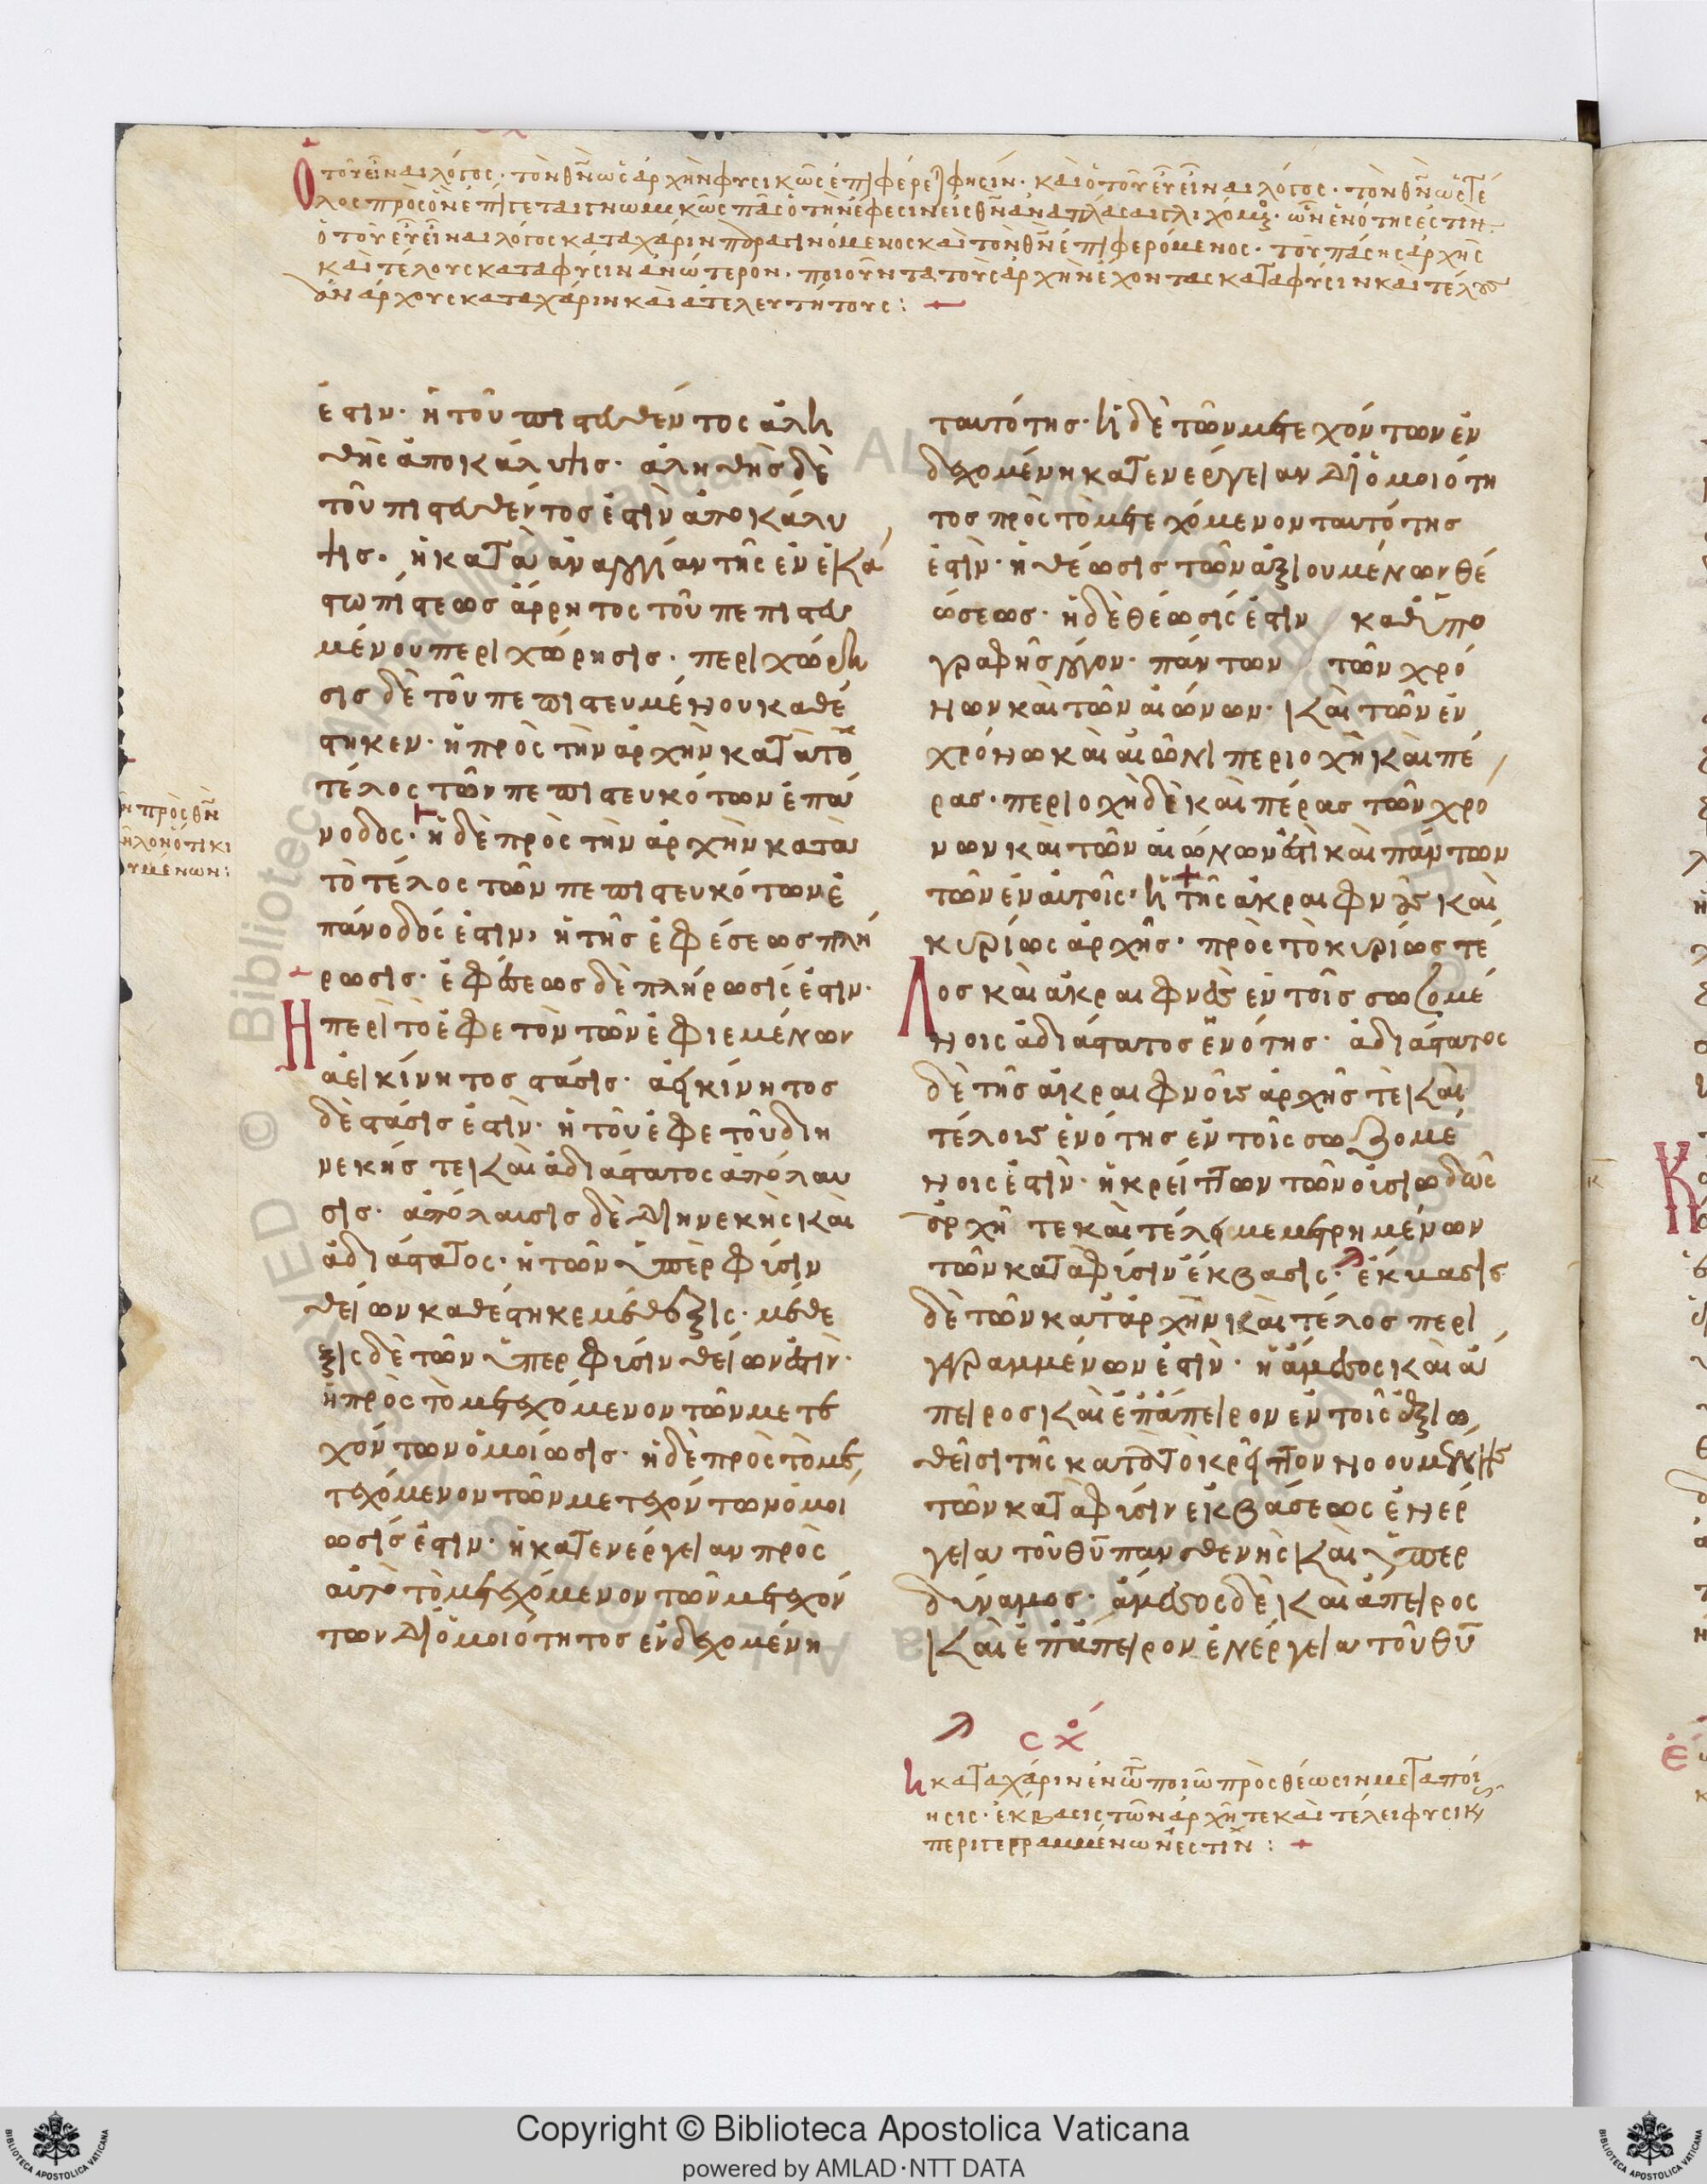 Ὁ τοῦ εἶναι λόγος· τὸν θ̅ν̅ ὡς ἀρχὴν φυσικῶς ἐπιφέρει φησίν· καὶ ὁ τοῦ εὖ εἶναι λόγος· τὸν θ̅ν̅ ὡς τέ
λος πρὸς ὃν ἐπ
ὁ τοῦ εὖ εἶναι λόγος κατα χάριν γινόμενος καὶ τὸν θ̅ν̅ ἐπιφερόμενος· τοῦ πάσης ἀρχῆς
καὶ τέλους κατα φύσιν ἀνώτερον· ποιοῦντα τοὺς ἀρχὴν ἔχοντας κατα φύσιν καὶ τέλος
ἀνάρχους κατα χάριν καὶ ἀτελευτήτους:
ἐστιν· ἡ τοῦ πιστευθέντος ἀλη
θὴς ἀποκάλυψις· ἀληθὴς δὲ
τοῦ πιστευθέντος ἐστὶν ἀποκάλυ
ψις· ἡ κατα ἀναλογίαν τῆς ἐν ἑκά
στω πίστεως ἄρρητος τοῦ πεπιστευ
μένου περιχώρησις· περιχώρη
σις δὲ τοῦ πεπιστευμένου καθέ
στηκεν· ἡ πρὸς τὴν ἀρχὴν κατὰ τὸ
τέλος τῶν πεπιστευκότων ἐπά
νοδος· ἡ δὲ πρὸς τὴν ἀρχὴν κατὰ
τὸ τέλος τῶν πεπιστευκότων ἐ
πάνοδός ἐστιν, ἡ τῆς ἐφέσεως πλή
ρωσις· ἐφέσεως δὲ πλήρωσίς ἐστιν·
Ἡ περὶ τὸ ἐφετὸν τῶν ἐφιεμένων
ἀεικίνητος στάσις· ἀεικίνητος
δὲ στάσις ἐστὶν· ἡ τοῦ ἐφετοῦ διη
νεκής τε καὶ ἀδιάστατος ἀπόλαυ
σις· ἀπόλαυσις δὲ διηνεκὴς καὶ
ἀδιάστατος· ἡ τῶν ὑπὲρ φύσιν
θείων καθέστηκε μέθεξις· μέθε
ξις δὲ τῶν ὑπερ φύσιν θείων ἐστὶν·
ἡ πρὸς τὸ μετεχόμενον τῶν μετε
χόντων ὁμοίωσις· ἡ δὲ πρὸς τὸ με
τεχόμενον τῶν μετεχόντων ὁμοί
ωσίς ἐστιν· ἡ κατ ενέργειαν πρὸς
αὐτὸ τὸ μετεχόμενον τῶν μετεχόν
των δι ὁμοιότητος ἐνδεχομένη
ἡ πρὸς θ̅ν̅
ταυτότης· ἡ δὲ τῶν μετεχόντων ἐν
δεχομένη κατ ενέργειαν δι ὁμοιότη
τος πρὸς τὸ μετεχόμενον ταυτότης
ἐστὶν· ἡ θέωσις τῶν ἀξιουμένων θε
ώσεως· ἡ δὲ θέωσίς ἐστιν καθ ὑπο
γραφῆς λόγον· πάντων τῶν χρό
νων καὶ τῶν αἰώνων· καὶ τῶν ἐν
χρόνω καὶ αἰῶνι περιοχὴ καὶ πέ
ρας· περιοχὴ δὲ καὶ πέρας τῶν χρό
νων καὶ τῶν αἰώνων ἐστὶ καὶ πάντων
τῶν ἐν αὐτοῖς· ἡ τῆς ἀκραιφνοῦς καὶ
κυρίως ἀρχῆς· πρὸς τὸ κυρίως τέ
Λος καὶ ἀκραιφνὲς ἐν τοῖς σωζομέ
νοις ἀδιάστατος ἑνότης· ἀδιάστατος
δὲ τῆς ἀκραιφνοῦς ἀρχῆς τε καὶ
τέλους ἑνότης ἐν τοῖς σωζομέ
νοις ἐστὶν· ἡ κρείττων τῶν οὐσιωδῶς
ἀρχῆ τε καὶ τέλει μεμετρημένων
τῶν κατὰ φύσιν ἔκβασις· ἔκβασις
δὲ τῶν κατ ἀρχὴν καὶ τέλος περι
γεγραμμένων ἐστὶν· ἡ ἄμεσος καὶ ἄ
πειρος καὶ ἐπ ἄπειρον ἐν τοῖς ἀξιω
θεῖσι τῆς κατὰ τὸ κρεῖττον νοουμένης
τῶν κατὰ φύσιν ἐκβάσεως ἐνέρ
γεια τοῦ θ̅υ̅ πανσθενὴς καὶ ὑπερ
δύναμος· ἄμεσος δὲ καὶ ἄπειρος
καὶ ἐπ ἄπειρον ἐνέργεια τοῦ θ̅υ̅
σχ
ἡ κατα χάριν πρὸς θέωσιν μεταποί
ησις· ἔκβασις τῶν ἀρχῆ τε καὶ τέλει φυσικῶς
περιγεγραμμένων ἐστίν:
Copyright © Biblioteca Apostolica Vaticana
powered by AMLAD·NTT DATA